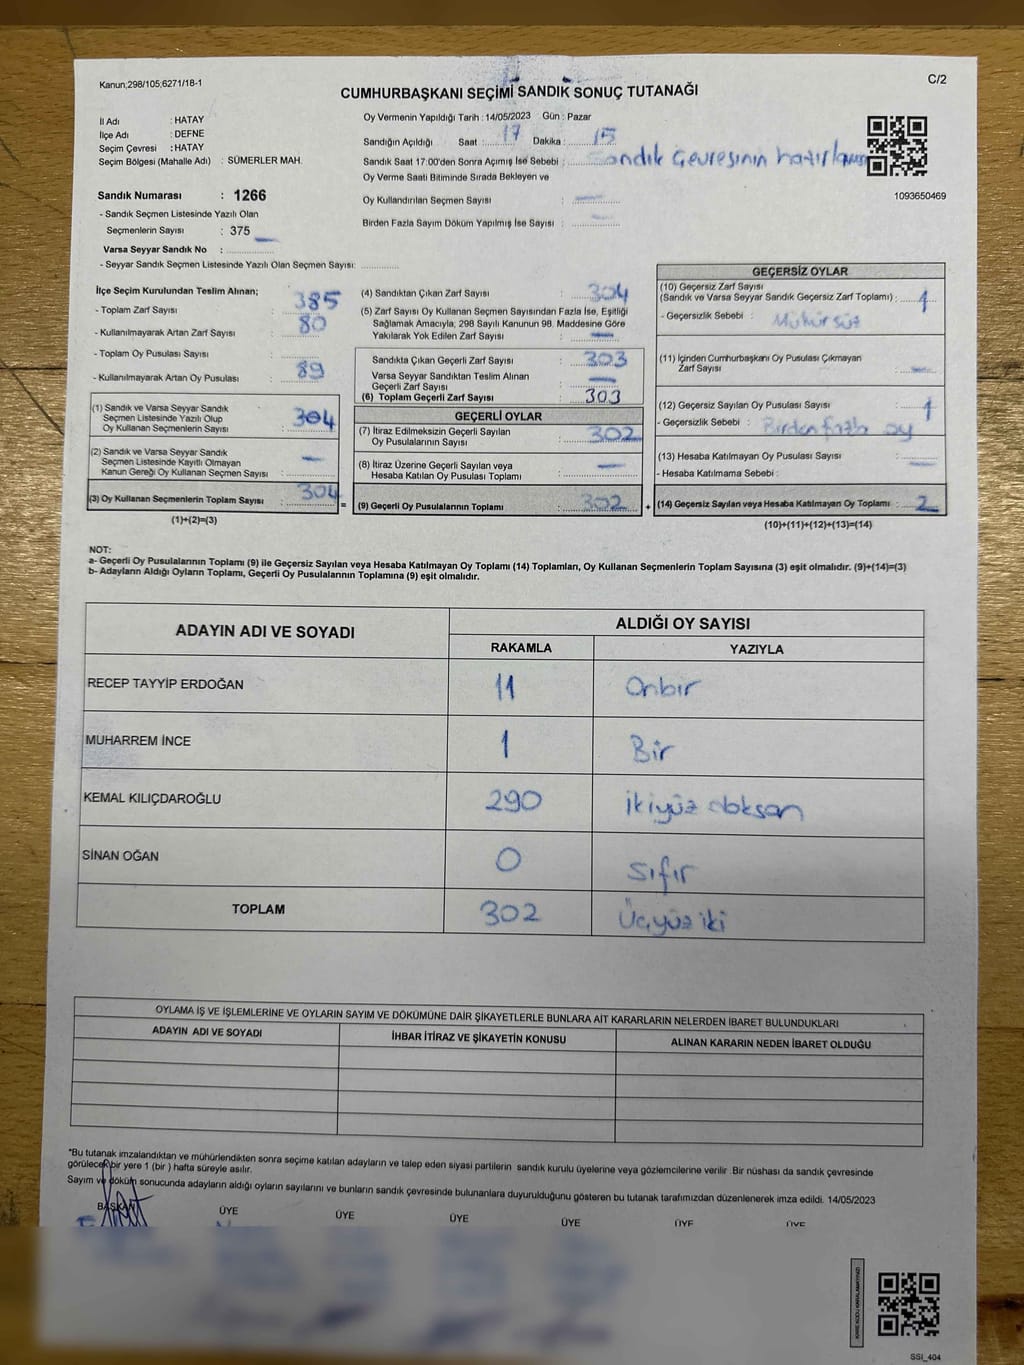 Kanun;298/105;6271/18-1
C/2
CUMHURBAŞKANI SEÇİMİ SANDIK SONUÇ TUTANAĞI
İl Adı : HATAY
İlçe Adı : DEFNE
Seçim Çevresi : HATAY
Seçim Bölgesi (Mahalle Adı) : SÜMERLER MAH.
Sandık Numarası : 1266
- Sandık Seçmen Listesinde Yazılı Olan
Seçmenlerin Sayısı : 375
Varsa Seyyar Sandık No :
- Seyyar Sandık Seçmen Listesinde Yazılı Olan Seçmen Sayısı:
Oy Vermenin Yapıldığı Tarih : 14/05/2023 Gün : Pazar
Sandığın Açıldığı Saat : 17 Dakika : 15
Sandık Saat 17:00'den Sonra Açımış İse Sebebi : Sandık Çevresinin
Oy Verme Saati Bitiminde Sırada Bekleyen ve
Oy Kullandırılan Seçmen Sayısı : —
Birden Fazla Sayım Döküm Yapılmış İse Sayısı : —
1093650469
İlçe Seçim Kurulundan Teslim Alınan;
- Toplam Zarf Sayısı : 385
- Kullanılmayarak Artan Zarf Sayısı : 80
- Toplam Oy Pusulası Sayısı :
- Kullanılmayarak Artan Oy Pusulası : 89
(1) Sandık ve Varsa Seyyar Sandık
Seçmen Listesinde Yazılı Olup
Oy Kullanan Seçmenlerin Sayısı : 304
(2) Sandık ve Varsa Seyyar Sandık
Seçmen Listesinde Kayıtlı Olmayan
Kanun Gereği Oy Kullanan Seçmen Sayısı : —
(3) Oy Kullanan Seçmenlerin Toplam Sayısı : 304
(1)+(2)=(3)
(4) Sandıktan Çıkan Zarf Sayısı : 304
(5) Zarf Sayısı Oy Kullanan Seçmen Sayısından Fazla İse, Eşitliği
Sağlamak Amacıyla; 298 Sayılı Kanunun 98. Maddesine Göre
Yakılarak Yok Edilen Zarf Sayısı : —
Sandıkta Çıkan Geçerli Zarf Sayısı : 303
Varsa Seyyar Sandıktan Teslim Alınan
Geçerli Zarf Sayısı : —
(6) Toplam Geçerli Zarf Sayısı : 303
GEÇERLİ OYLAR
(7) İtiraz Edilmeksizin Geçerli Sayılan
Oy Pusulalarının Sayısı : 302
(8) İtiraz Üzerine Geçerli Sayılan veya
Hesaba Katılan Oy Pusulaları Toplamı : —
= (9) Geçerli Oy Pusulalarının Toplamı : 302
GEÇERSİZ OYLAR
(10) Geçersiz Zarf Sayısı
(Sandık ve Varsa Seyyar Sandık Geçersiz Zarf Toplamı) : 1
- Geçersizlik Sebebi : Mühürsüz
(11) İçinden Cumhurbaşkanı Oy Pusulası Çıkmayan
Zarf Sayısı : —
(12) Geçersiz Sayılan Oy Pusulası Sayısı : 1
- Geçersizlik Sebebi : Birden fazla oy
(13) Hesaba Katılmayan Oy Pusulası Sayısı : —
- Hesaba Katılmama Sebebi :
+ (14) Geçersiz Sayılan veya Hesaba Katılmayan Oy Toplamı : 2
(10)+(11)+(12)+(13)=(14)
NOT:
a- Geçerli Oy Pusulalarının Toplamı (9) ile Geçersiz Sayılan veya Hesaba Katılmayan Oy Toplamı (14) Toplamları, Oy Kullanan Seçmenlerin Toplam Sayısına (3) eşit olmalıdır. (9)+(14)=(3)
b- Adayların Aldığı Oyların Toplamı, Geçerli Oy Pusulalarının Toplamına (9) eşit olmalıdır.
ADAYIN ADI VE SOYADI
ALDIĞI OY SAYISI
RAKAMLA YAZIYLA
RECEP TAYYİP ERDOĞAN 11 Onbir
MUHARREM İNCE 1 Bir
KEMAL KILIÇDAROĞLU 290 ikiyüz doksan
SİNAN OĞAN 0 Sıfır
TOPLAM 302 Üçyüz iki
OYLAMA İŞ VE İŞLEMLERİNE VE OYLARIN SAYIM VE DÖKÜMÜNE DAİR ŞİKAYETLERLE BUNLARA AİT KARARLARIN NELERDEN İBARET BULUNDUKLARI
ADAYIN ADI VE SOYADI İHBAR İTİRAZ VE ŞİKAYETİN KONUSU ALINAN KARARIN NEDEN İBARET OLDUĞU
*Bu tutanak imzalandıktan ve mühürlendikten sonra seçime katılan adayların ve talep eden siyasi partilerin sandık kurulu üyelerine veya gözlemcilerine verilir. Bir nüshası da sandık çevresinde
görülecek bir yere 1 (bir ) hafta süreyle asılır.
Sayım ve döküm sonucunda adayların aldığı oyların sayılarını ve bunların sandık çevresinde bulunanlara duyurulduğunu gösteren bu tutanak tarafımızdan düzenlenerek imza edildi. 14/05/2023
BAŞKAN ÜYE ÜYE ÜYE ÜYE ÜYE ÜYE
SSI_404